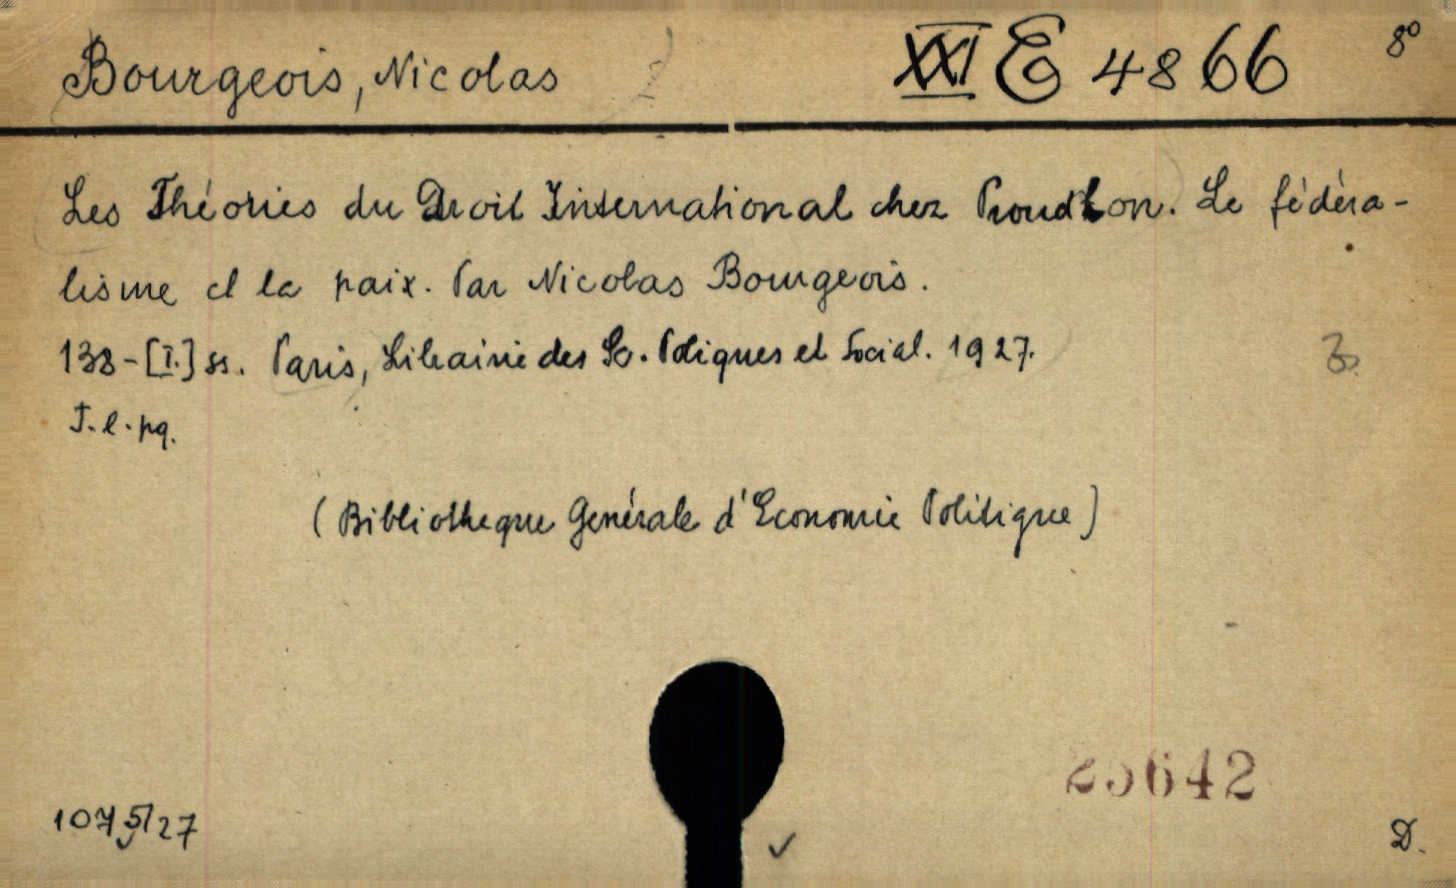 Bourgeois, Nicolas
XXI E 4866
8°
Les Théories du Droit International chez Proudhon. Le fédéra-
lisme et la paix. Par Nicolas Bourgeois.
138-[I.] ss. Paris, Librairie des Sc. Poliques et Social. 1927.
T. l. pq.
(Bibliotheque Générale d'Economie Politique)
25642
D.